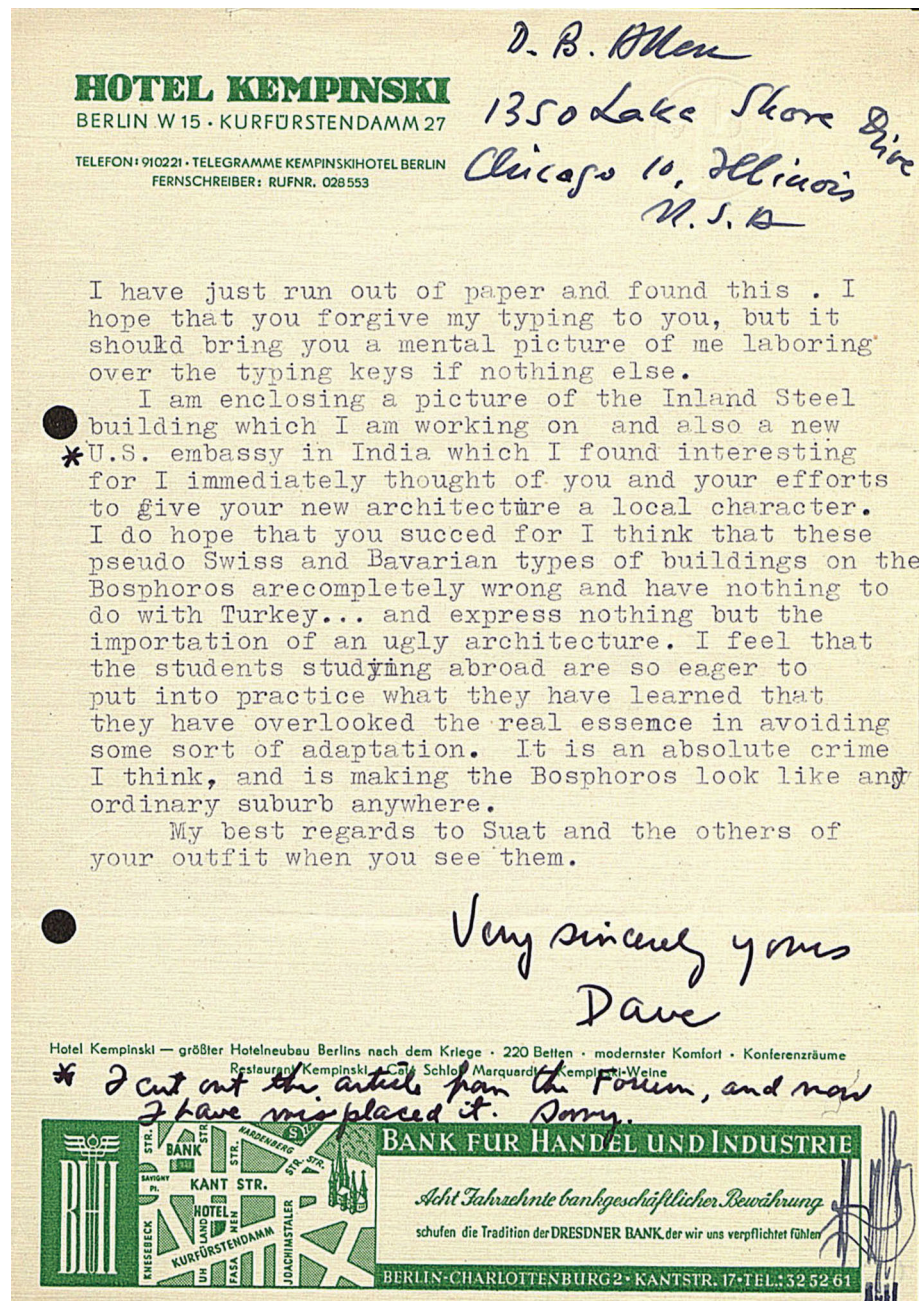 D. B. Allen
1350 Lake Shore Drive
Chicago 10, Illinois
U.S.A
HOTEL KEMPINSKI
BERLIN W 15 · KURFÜRSTENDAMM 27
TELEFON: 910221 · TELEGRAMME KEMPINSKIHOTEL BERLIN
FERNSCHREIBER: RUFNR. 028553
I have just run out of paper and found this . I
hope that you forgive my typing to you, but it
should bring you a mental picture of me laboring
over the typing keys if nothing else.
I am enclosing a picture of the Inland Steel
building which I am working on and also a new
* U.S. embassy in India which I found interesting
for I immediately thought of you and your efforts
to give your new architecture a local character.
I do hope that you succed for I think that these
pseudo Swiss and Bavarian types of buildings on the
Bosphoros arecompletely wrong and have nothing to
do with Turkey... and express nothing but the
importation of an ugly architecture. I feel that
the students studying abroad are so eager to
put into practice what they have learned that
they have overlooked the real essence in avoiding
some sort of adaptation. It is an absolute crime
I think, and is making the Bosphoros look like any
ordinary suburb anywhere.
My best regards to Suat and the others of
your outfit when you see them.
Very sincerely yours
Dave
Hotel Kempinski — größter Hotelneubau Berlins nach dem Kriege · 220 Betten · modernster Komfort · Konferenzräume
Restaurant Kempinski · Café Schloß Marquardt · Kempinski-Weine
* I cut out the article from the Forum, and now
I have misplaced it. Sorry.
BHI
STR.
BANK
STR.
HARDENBERG STR.
STR.
STR.
SAVIGNY PL.
KANT STR.
HOTEL
KNESEBECK
UHLAND
FASANEN
KURFÜRSTENDAMM
JOACHIMSTALER
BANK FÜR HANDEL UND INDUSTRIE
Acht Jahrzehnte bankgeschäftlicher Bewährung
schufen die Tradition der DRESDNER BANK, der wir uns verpflichtet fühlen
BERLIN-CHARLOTTENBURG 2 · KANTSTR. 17 · TEL.: 32 52 61